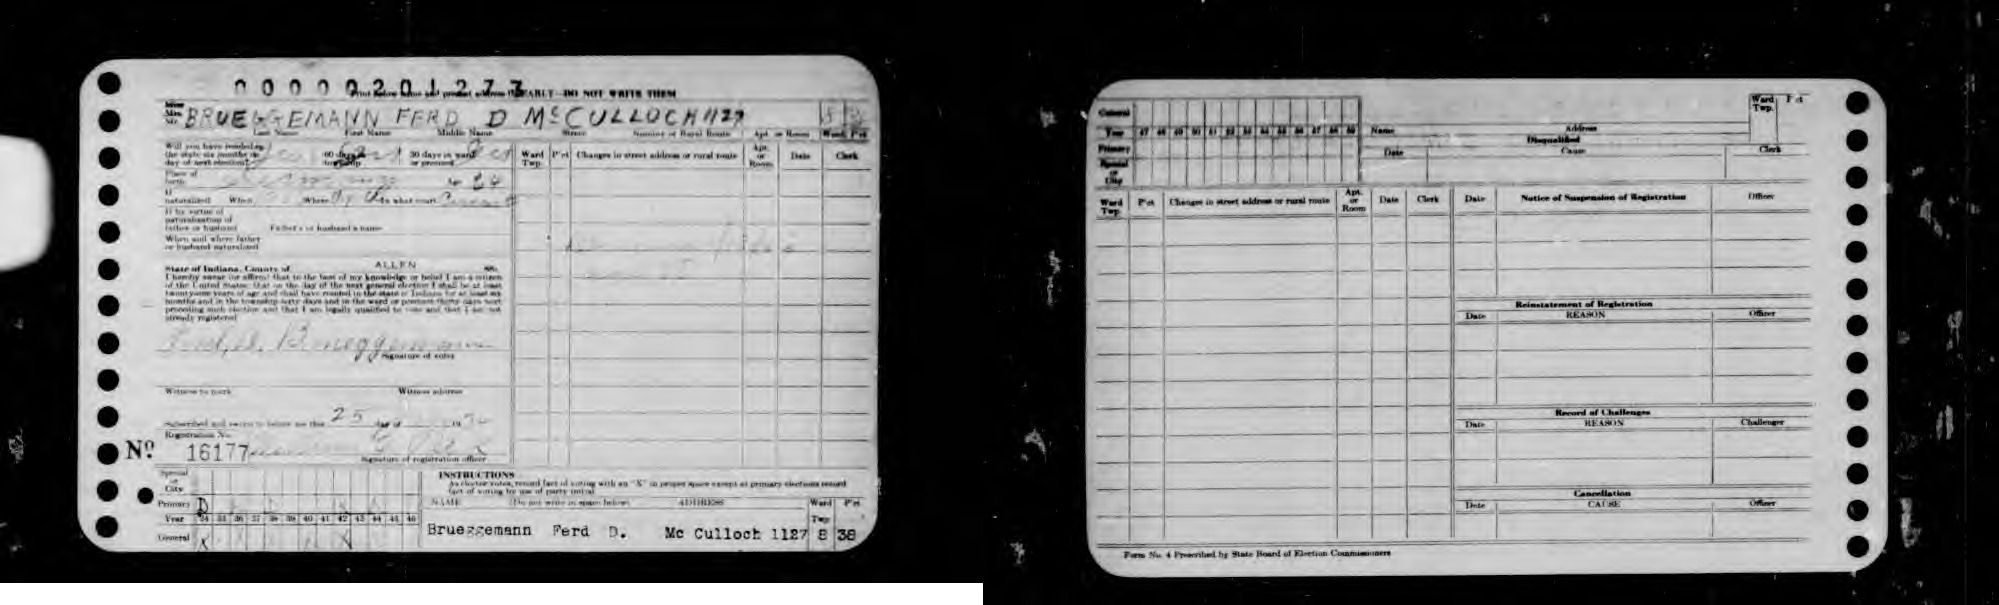 0000020 1277
Print below name and present address CLEARLY—DO NOT WRITE THEM
Miss
Mrs.
Mr. BRUEGGEMANN FERD D McCULLOCH 1127 8
Last Name First Name Middle Name Street Number or Rural Route Apt. or Room Ward P'ct
Will you have resided in
the state six months on 60 days in 30 days in ward
day of next election? township or precinct
Place of
birth
If
naturalized When Where In what court
If by virtue of
naturalization of
father or husband Father's or husband's name
When and where father
or husband naturalized
State of Indiana, County of ALLEN SS:
I hereby swear (or affirm) that to the best of my knowledge or belief I am a citizen
of the United States; that on the day of the next general election I shall be at least
twenty-one years of age and shall have resided in the state of Indiana for at least six
months and in the township sixty days and in the ward or precinct thirty days next
preceding such election and that I am legally qualified to vote and that I am not
already registered
Ferd. D. Brueggemann
Signature of voter
Witness to mark Witness address
Subscribed and sworn to before me this 25 day of 19
Registration No.
No. 16177
Signature of registration officer
Ward
Twp. P'ct Changes in street address or rural route Apt.
or
Room Date Clerk
Special
or
City
Primary D
Year 34 35 36 37 38 39 40 41 42 43 44 45 46
General X X
INSTRUCTIONS
As elector votes, record fact of voting with an "X" in proper space except at primary elections record
fact of voting by use of party initial
NAME (Do not write in space below) ADDRESS Ward
Twp P'ct
Brueggemann Ferd D. Mc Culloch 1127 8 38
General
Year 47 48 49 50 51 52 53 54 55 56 57 58 59
Primary
Special
or
City
Name Address Ward
Twp. P'ct
Disqualified
Date Cause Clerk
Ward
Twp. P'ct Changes in street address or rural route Apt.
or
Room Date Clerk
Date Notice of Suspension of Registration Officer
Reinstatement of Registration
Date REASON Officer
Record of Challenges
Date REASON Challenger
Cancellation
Date CAUSE Officer
Form No. 4 Prescribed by State Board of Election Commissioners